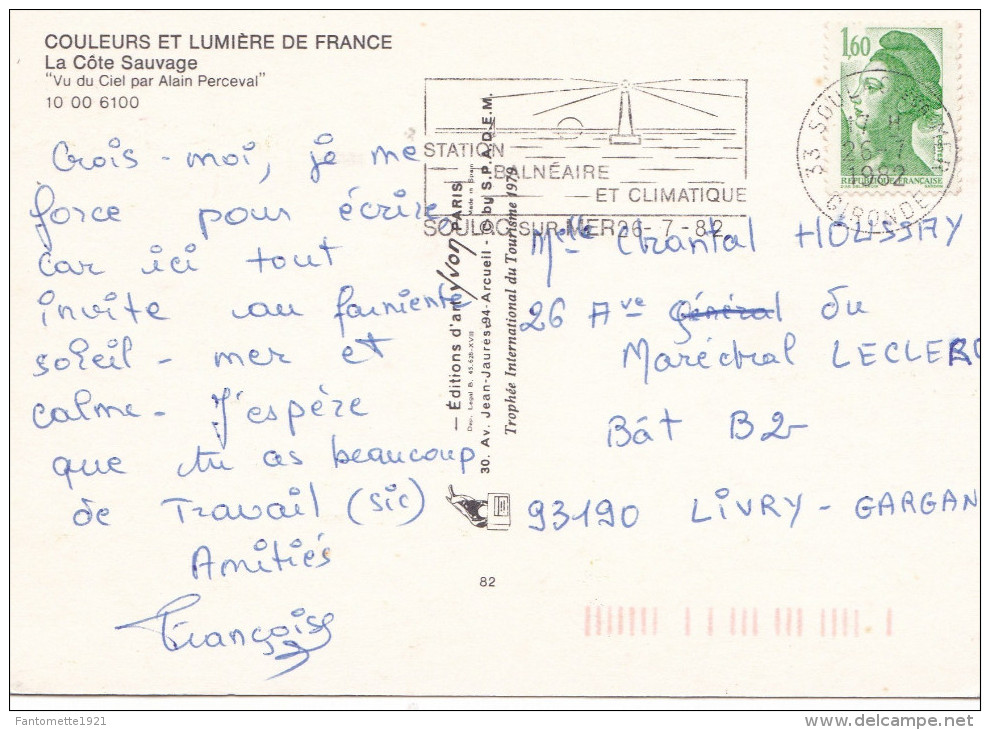 COULEURS ET LUMIÈRE DE FRANCE
La Côte Sauvage
"Vu du Ciel par Alain Perceval"
10 00 6100
Crois-moi, je me
force pour écrire
car ici tout
invite au farniente
soleil - mer et
calme - J'espère
que tu as beaucoup
de Travail (sic)
Amitiés
Françoise
— Éditions d'art Yvon PARIS
Made in Spain
Dep. Legal B. 45.628-XVII
30. Av. Jean-Jaures-94-Arcueil - © by S.P.A.D.E.M.
Trophée International du Tourisme 1979
82
STATION
BALNÉAIRE
ET CLIMATIQUE
SOULAC SUR MER 26-7-82
1,60
REPUBLIQUE FRANÇAISE
33 SOULAC S MER
26-7
1982
GIRONDE
Melle Chantal HOUSSAY
26 Ave Général du
Maréchal LECLERC
Bât B2
93190 LIVRY-GARGAN
Fantomette1921
delcampe.net